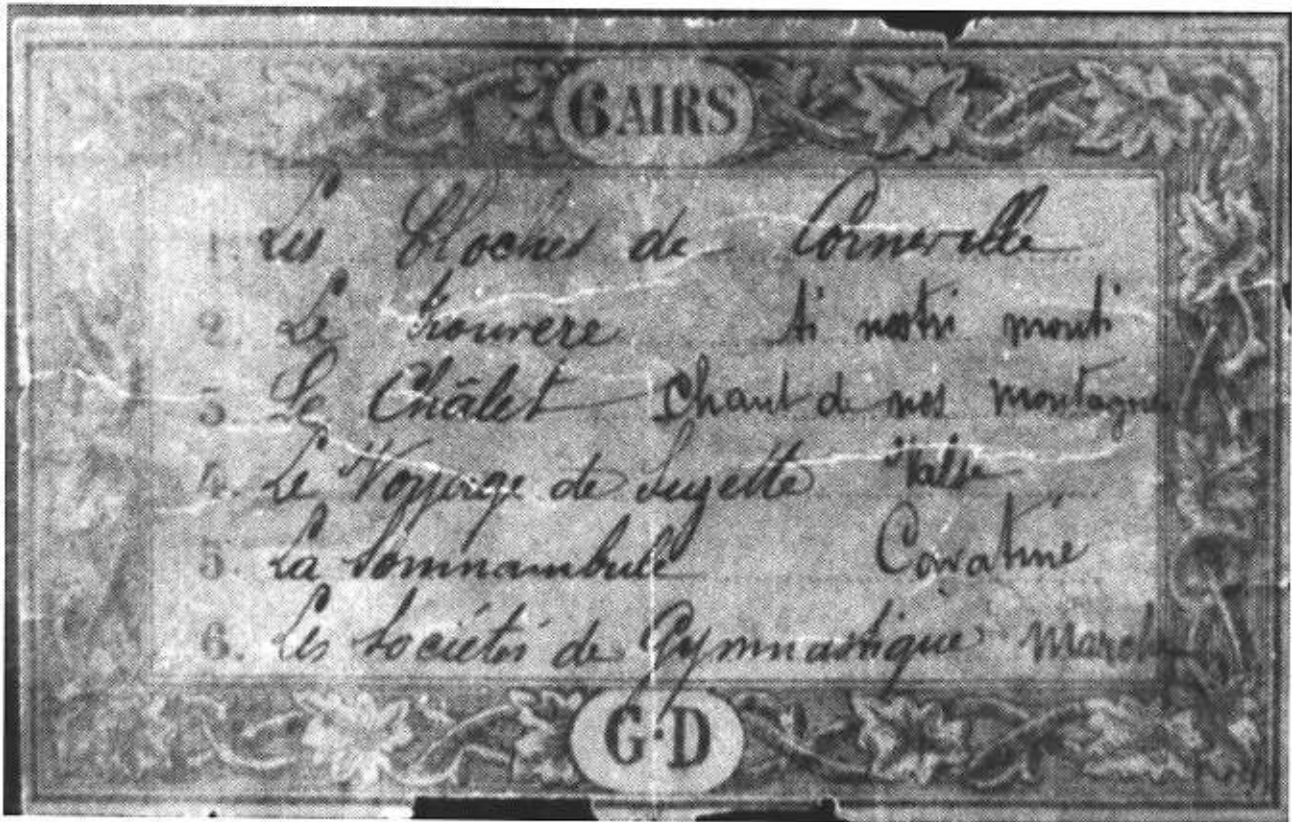 6 AIRS
1. Les Cloches de Corneville
2. Le Trouvère ti nostri monti
3. Le Châlet Chant de nos montagnes
4. Le Voyage de Suzette Valse
5. La Somnambule Cavatine
6. Les Sociétés de Gymnastique Marche
G·D